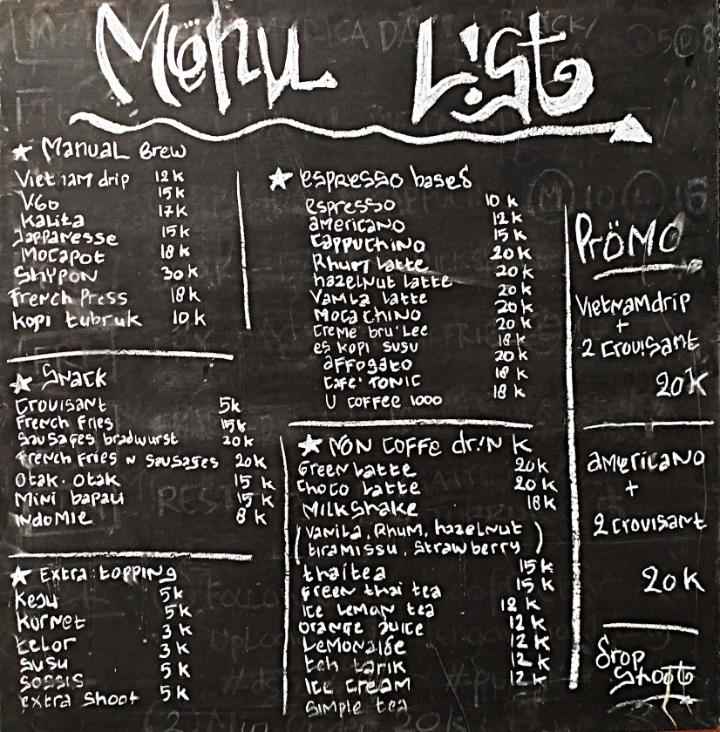 Menu List
★ Manual Brew
Vietnam drip 12k
V60 15k
Kalita 17k
Jappanesse 15k
Mocapot 18k
Shypon 30k
French Press 18k
Kopi tubruk 10k
★ Snack
Crouisant 5k
French Fries 15k
Sausages bradwurst 20k
French Fries n Sausages 20k
Otak-Otak 15k
Mini bapau 15k
Indomie 8k
★ Extra topping
Keju 5k
Kornet 5k
telor 3k
susu 3k
sosis 5k
extra Shoot 5k
★ espresso based
espresso 10k
americano 12k
Cappuchino 15k
Rhum latte 20k
hazelnut latte 20k
Vanila latte 20k
Mocachino 20k
Creme bru'lee 20k
es kopi susu 18k
affogato 20k
Cafe' Tonic 18k
U coffee 1000 18k
★ Non Coffe drink
Green latte 20k
Choco latte 20k
Milkshake 18k
(Vanila, Rhum, hazelnut
tiramissu, Strawberry)
thaitea 15k
Green thai tea 15k
Ice lemon tea 12k
Orange Juice 12k
Lemonaide 12k
teh tarik 12k
Ice cream 12k
Simple tea
Prömo
Vietnamdrip
+
2 Crouisant
20k
americano
+
2 crouisant
20k